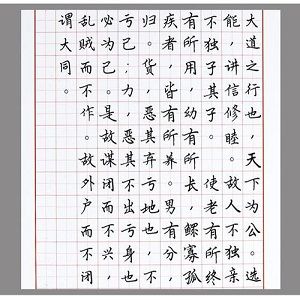 大道之行也，天下为公。选
能，讲信修睦。故人不独亲
不独子其子。使老有所终
有所用，幼有所长，鳏寡孤
疾者，皆有所养。男有分，
归。货，恶其弃亏地也，不
亏己。力，恶其不出亏身也
必为己。是故谋闭而不兴，
乱贼而不作。故外户而不闭，
谓大同。